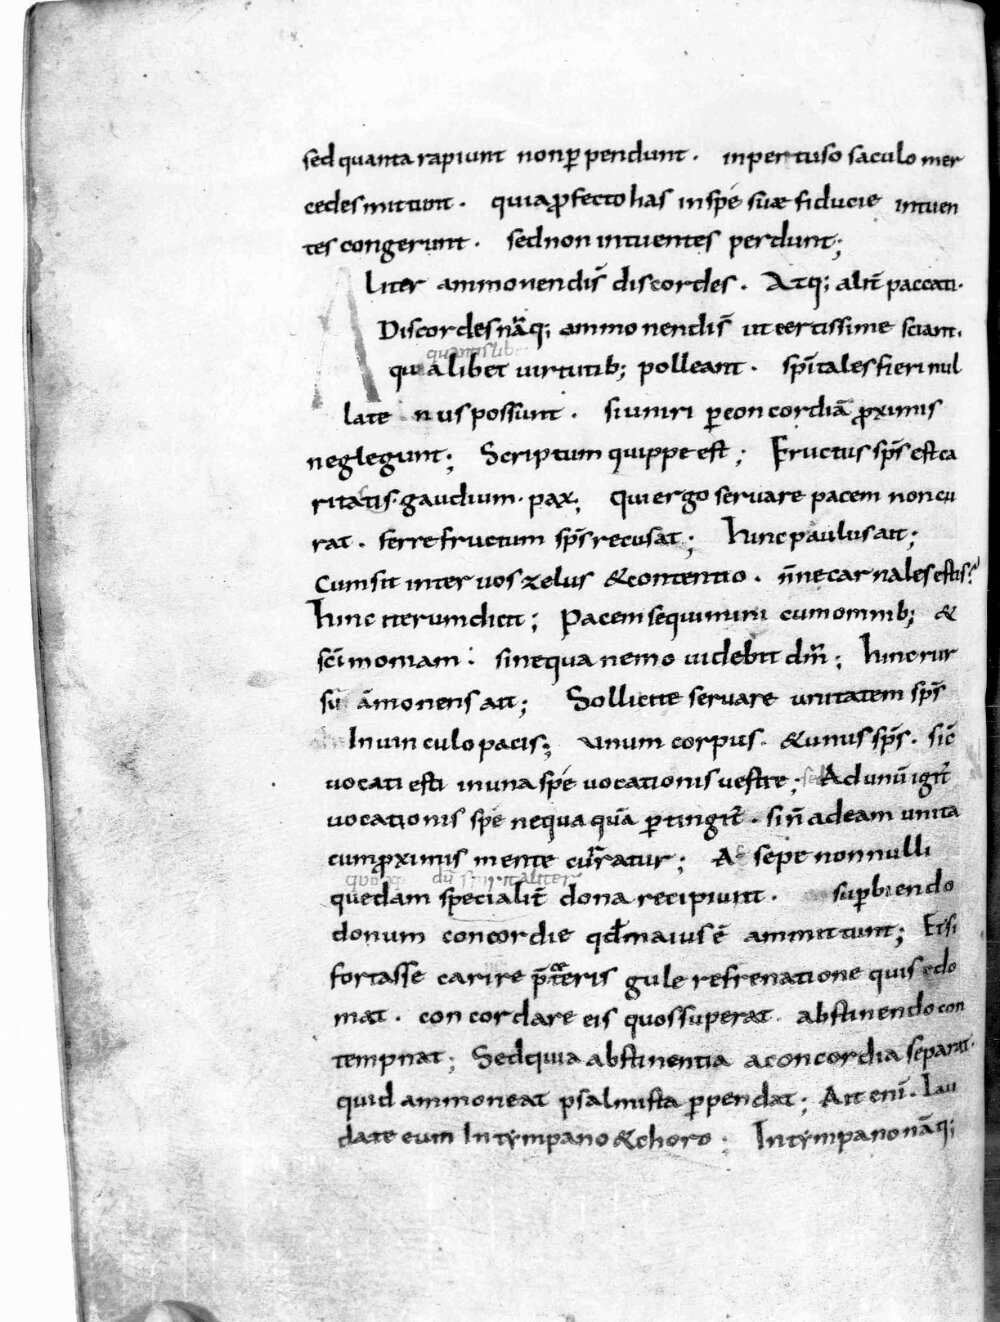 sed quanta rapiunt non ꝑpendunt . inpertuso saculo mer
cedes mittunt . quia ꝓfecto has inspe suę fiducie intuen
tes congerunt . sed non intuentes perdunt;
Aliter ammonendi s̄ discordes . Atq; alit̄ paccati .
Discordes nāq; ammonendi s̄ ut certissime sciant .
quamlib
quia libet uirtutib; polleant . sp̄itales fieri nul
late nus possunt . si uniri ꝑ concordiā ꝓximis
neglegunt; Scriptum quippe est; Fructus sp̄s est ca
ritatis . gaudium . pax; Qui ergo seruare pacem non cu
rat . ferre fructum sp̄s recusat; Hinc paulus ait;
Cum sit inter uos zelus & contentio . n̄ne carnales estis?
Hinc iterum dicit; Pacem sequimini cum omnib; &
sc̄i moniam . sine qua nemo uidebit dm̄; Hinc rur
sū āmonens ait; Solliciti seruare unitatem sp̄s
In uinculo pacis; unum corpus . & unus sp̄s . sic̄
uocati esti in una spe uocationis vestre; Ad unū igit̄
uocationis spe nequa quā ꝑtingit̄ . si n̄ ad eam unita
cum ꝓximis mente curratur; At sepe nonnulli
quo dū spiritaliter
quedam specialit̄ dona recipiunt . suꝑbiendo
donum concordie qđ maius ē ammittunt; Et si
fortasse carne p̄ ceteris gule refrenatione quis edo
mat . concordare eis quos superat . abstinendo con
tempnat; Sed quia abstinentia a concordia separat .
quid ammoneat psalmista ꝑpendat; Ait enī . Lau
date eum In tympano & choro; In tympano nāq;